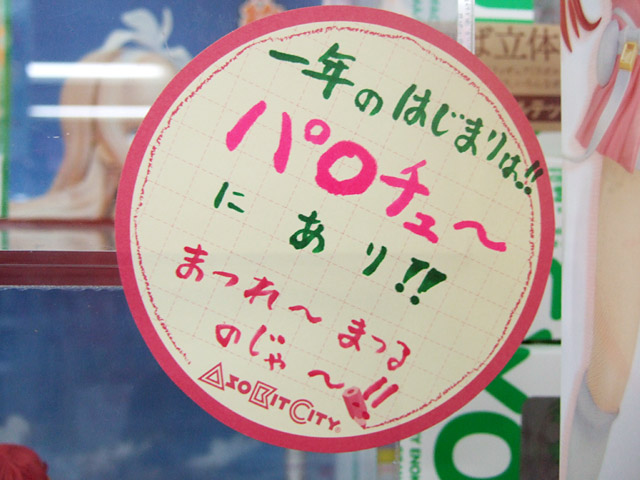 一年のはじまりは!!
パロチュ〜
にあり!!
まつれ〜まつる
のじゃ〜!!
ASOBITCITY
ば立体